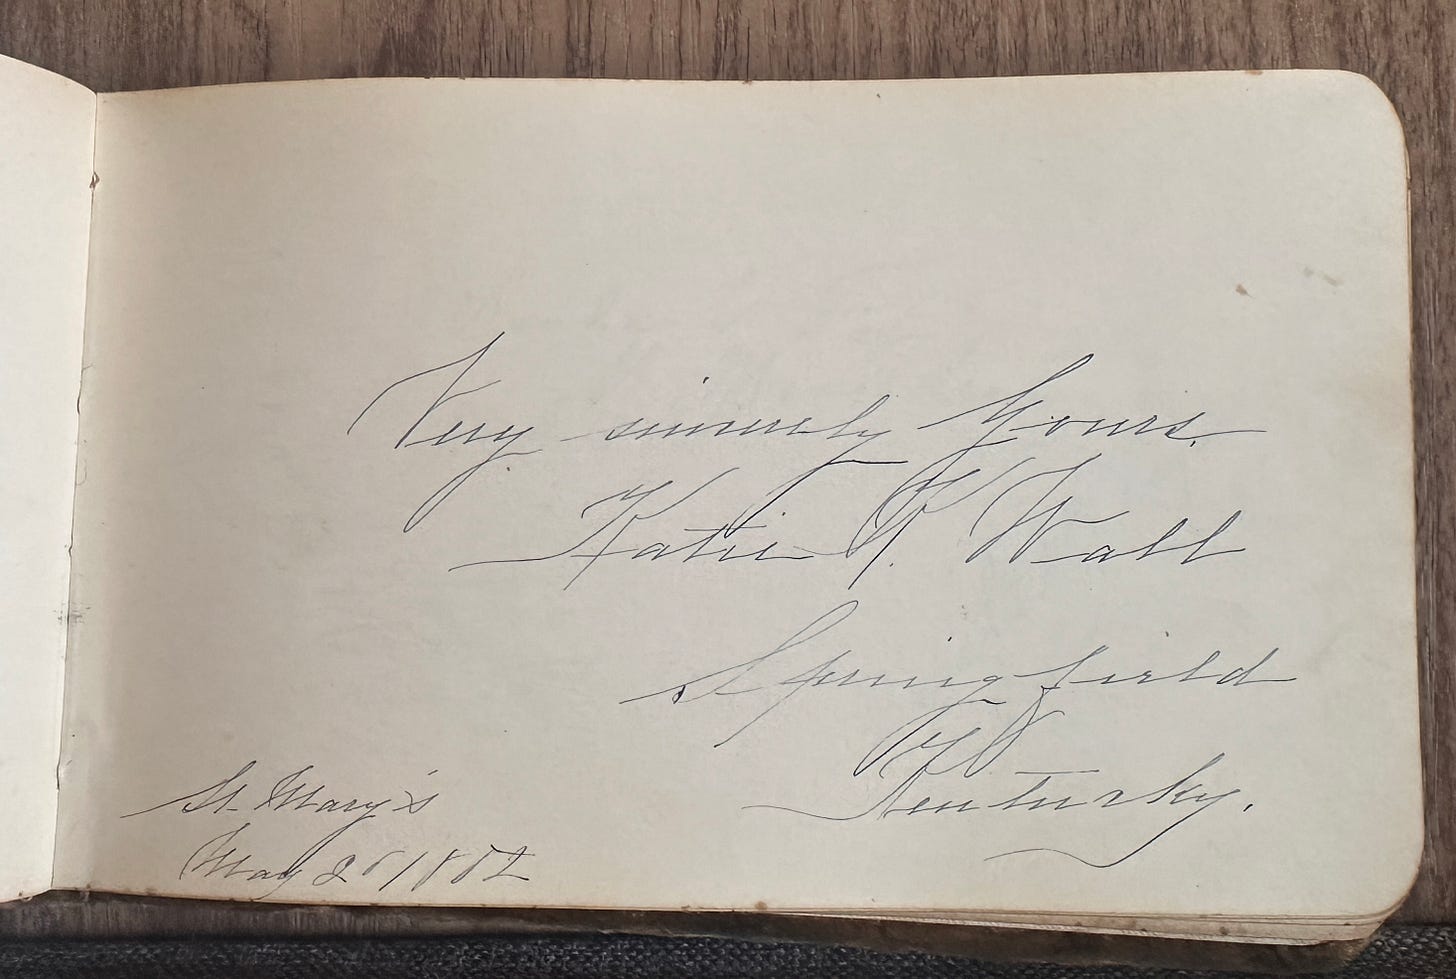 Very sincerely Yours.
Katie K. Wall
Springfield
Kentucky.
St. Mary's
May 1882